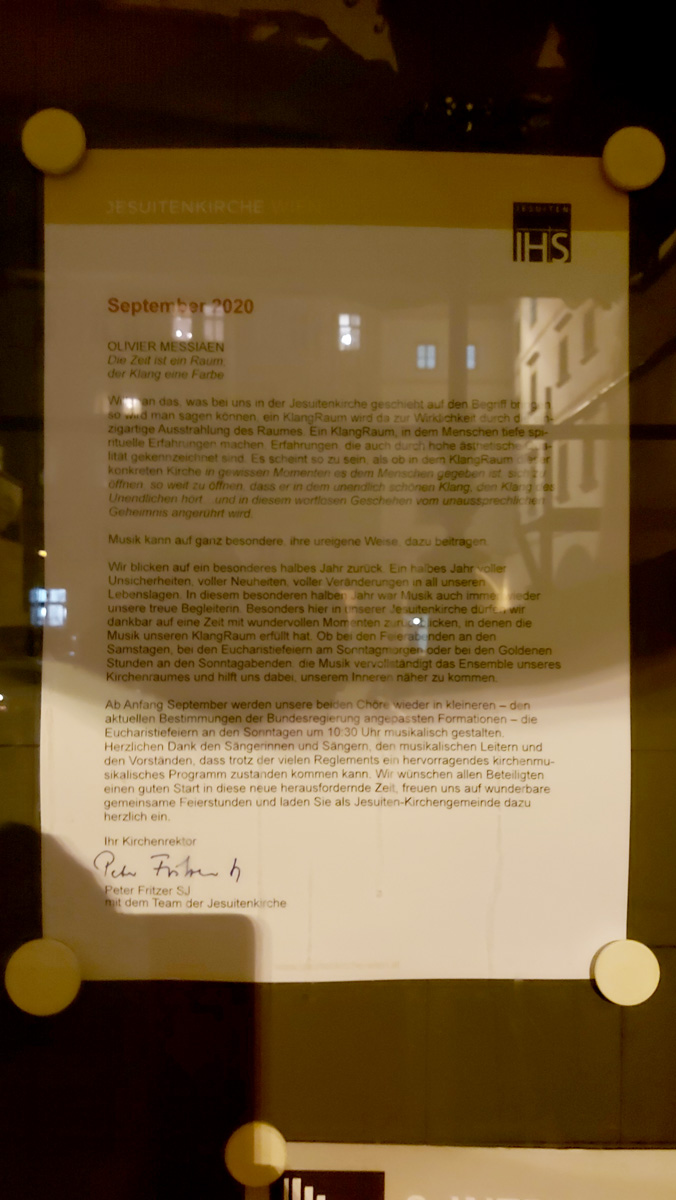 JESUITENKIRCHE WIEN
JESUITEN
IHS
September 2020
OLIVIER MESSIAEN
Die Zeit ist ein Raum;
der Klang eine Farbe
man das, was bei uns in der Jesuitenkirche geschieht auf den Begriff bringen
so wird man sagen können, ein KlangRaum wird da zur Wirklichkeit durch die ein-
zigartige Ausstrahlung des Raumes. Ein KlangRaum, in dem Menschen tiefe spi-
rituelle Erfahrungen machen. Erfahrungen, die auch durch hohe ästhetische Qua-
lität gekennzeichnet sind. Es scheint so zu sein, als ob in dem KlangRaum dieser
konkreten Kirche in gewissen Momenten es dem Menschen gegeben ist, sich zu
öffnen, so weit zu öffnen, dass er in dem unendlich schönen Klang, den Klang des
Unendlichen hört...und in diesem wortlosen Geschehen vom unaussprechlichen
Geheimnis angerührt wird.
Musik kann auf ganz besondere, ihre ureigene Weise, dazu beitragen.
Wir blicken auf ein besonderes halbes Jahr zurück. Ein halbes Jahr voller
Unsicherheiten, voller Neuheiten, voller Veränderungen in all unseren
Lebenslagen. In diesem besonderen halben Jahr war Musik auch immer wieder
unsere treue Begleiterin. Besonders hier in unserer Jesuitenkirche dürfen wir
dankbar auf eine Zeit mit wundervollen Momenten zurückblicken, in denen die
Musik unseren KlangRaum erfüllt hat. Ob bei den Feierabenden an den
Samstagen, bei den Eucharistiefeiern am Sonntagmorgen oder bei den Goldenen
Stunden an den Sonntagabenden, die Musik vervollständigt das Ensemble unseres
Kirchenraumes und hilft uns dabei, unserem Inneren näher zu kommen.
Ab Anfang September werden unsere beiden Chöre wieder in kleineren – den
aktuellen Bestimmungen der Bundesregierung angepassten Formationen – die
Eucharistiefeiern an den Sonntagen um 10:30 Uhr musikalisch gestalten.
Herzlichen Dank den Sängerinnen und Sängern, den musikalischen Leitern und
den Vorständen, dass trotz der vielen Reglements ein hervorragendes kirchenmu-
sikalisches Programm zustanden kommen kann. Wir wünschen allen Beteiligten
einen guten Start in diese neue herausfordernde Zeit, freuen uns auf wunderbare
gemeinsame Feierstunden und laden Sie als Jesuiten-Kirchengemeinde dazu
herzlich ein.
Ihr Kirchenrektor
Peter Fritzer SJ
Peter Fritzer SJ
mit dem Team der Jesuitenkirche